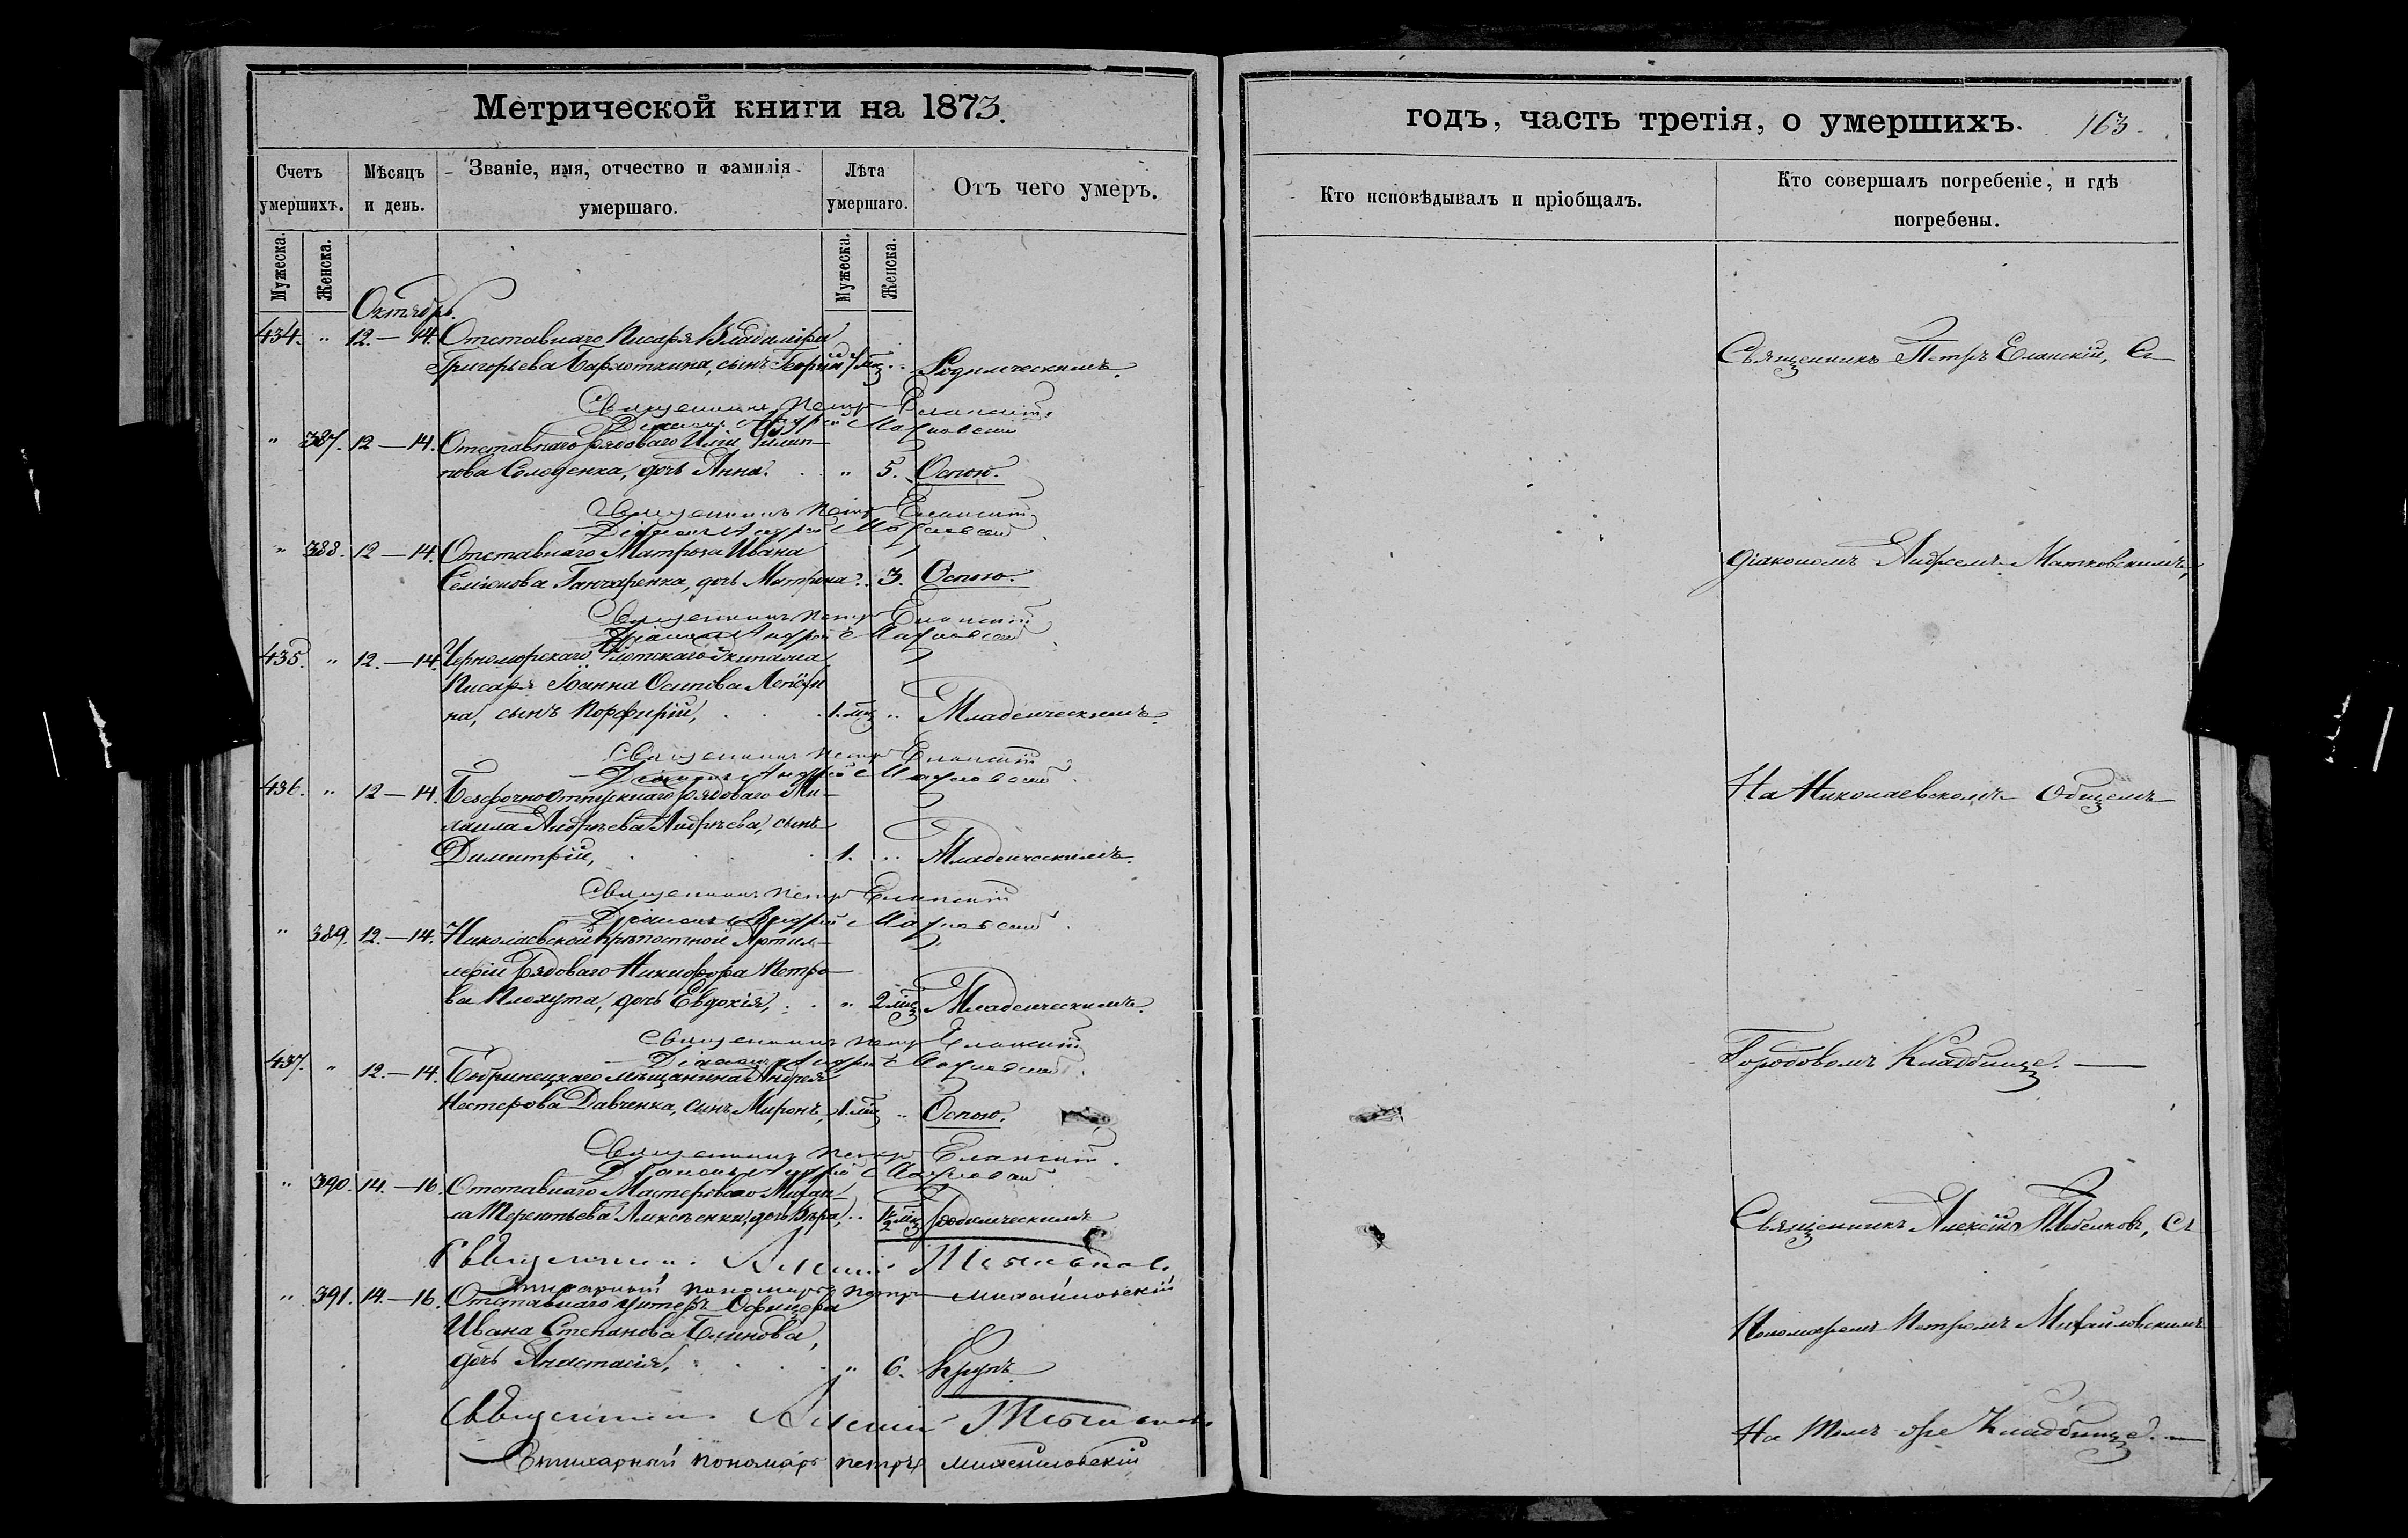 Метрической книги на 1873.
Счетъ умершихъ.
Мѣсяцъ и день.
Званіе, имя, отчество и фамилія умершаго.
Лѣта умершаго.
Отъ чего умеръ.
Мужеска.
Женска.
Мужеска.
Женска.
Октябрь.
434. " 12.—14. Отставнаго Писаря Владиміра
Григорьева сынъ Георгій 7 мц " Родимческимъ.
Священникъ Петръ Еланскій
Діаконъ Андрей
" 387. 12—14. Отставнаго рядоваго Иліи Филип-
пова Солоденка, дочь Анна. " 5. Оспою.
Священникъ Петръ Еланскій
Діаконъ Андрей
" 388. 12—14. Отставнаго Матроза Ивана
Семіонова Ганчаренка, дочь Матрона. " 3. Оспою.
Священникъ Петръ Еланскій
Діаконъ Андрей
435. " 12.—14. Черноморскаго Флотскаго Экипажа
Писаря Іоанна Осипова
на, сынъ Порфирій, 1. мц " Младенческимъ.
Священникъ Петръ Еланскій
Діаконъ Андрей
436. " 12—14. Безсрочноотпускнаго рядоваго Ми-
хаила Андрѣева Андрѣева, сынъ
Димитрій, 1. " Младенческимъ.
Священникъ Петръ Еланскій
Діаконъ Андрей
" 389. 12.—14. Николаевской Крѣпостной Артил-
леріи Рядоваго Никифора Петро-
ва Плохута, дочь Евдокія, " 2 мц Младенческимъ.
Священникъ Петръ Еланскій
Діаконъ Андрей
437. " 12.—14. Бобринецкаго мѣщанина Андрея
Нестерова Давченка, сынъ Миронъ, 1. мц " Оспою.
Священникъ Петръ Еланскій
Діаконъ Андрей
" 390. 14.—16. Отставнаго Мастероваго Михаи-
ла Терентьева Алексѣенки, дочь Вѣра, " мц Родимческимъ
Священникъ Алексій
Стихарный пономарь Петръ Михайловскій
" 391. 14.—16. Отставнаго Унтеръ Офицера
Ивана Степанова Блинова,
дочь Анастасія, " 6. Крупъ.
Священникъ Алексій
Стихарный пономарь Петръ Михайловскій
годъ, часть третія, о умершихъ. 163.
Кто исповѣдывалъ и пріобщалъ.
Кто совершалъ погребеніе, и гдѣ
погребены.
Священникъ Петръ Еланскій, Съ
діакономъ Андреемъ
На Николаевскомъ Общемъ
Городовомъ Кладбище. —
Священникъ Алексій Съ
Пономаремъ Петромъ Михайловскимъ
На томъ же Кладбище. —